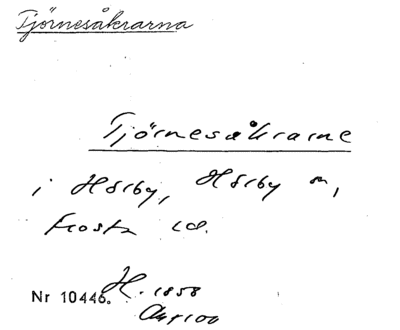 Tjörnesåkrarna
Tjörnesåkrarne
i Hörby, Hörby sn,
Frosta hd.
Nr 10446. H. 1858